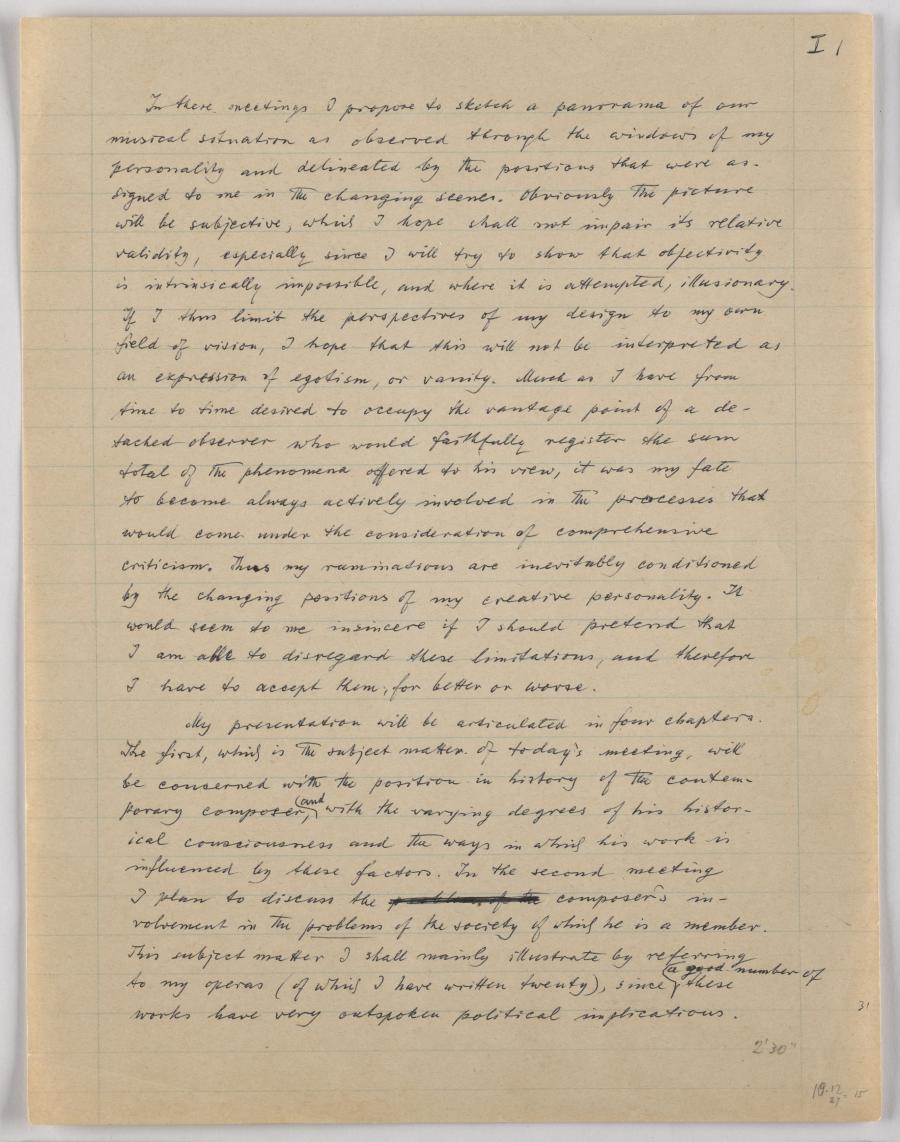 I 1
In these meetings I propose to sketch a panorama of our
musical situation as observed through the windows of my
personality and delineated by the positions that were as-
signed to me in the changing scenes. Obviously the picture
will be subjective, which I hope shall not impair its relative
validity, especially since I will try to show that objectivity
is intrinsically impossible, and where it is attempted, illusionary.
If I thus limit the perspectives of my design to my own
field of vision, I hope that this will not be interpreted as
an expression of egotism, or vanity. Much as I have from
time to time desired to occupy the vantage point of a de-
tached observer who would faithfully register the sum
total of the phenomena offered to his view, it was my fate
to become always actively involved in the processes that
would come under the consideration of comprehensive
criticism. Thus my ruminations are inevitably conditioned
by the changing positions of my creative personality. It
would seem to me insincere if I should pretend that
I am able to disregard these limitations, and therefore
I have to accept them, for better or worse.
My presentation will be articulated in four chapters.
The first, which is the subject matter of today's meeting, will
be concerned with the position in history of the contem-
porary composer, and with the varying degrees of his histor-
ical consciousness and the ways in which his work is
influenced by these factors. In the second meeting
I plan to discuss the composer's in-
volvement in the problems of the society of which he is a member.
This subject matter I shall mainly illustrate by referring
to my operas (of which I have written twenty), since a good number of these
works have very outspoken political implications.
31
2'30"